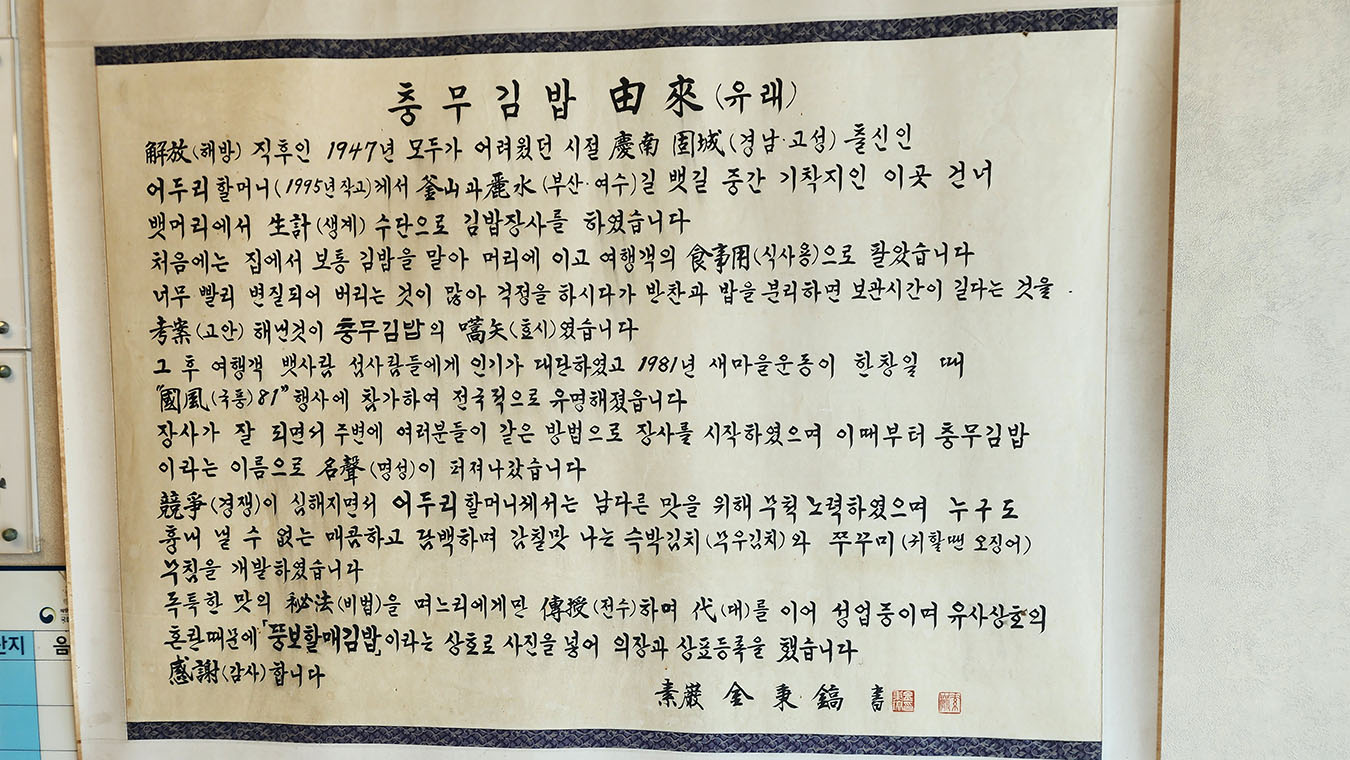 충무김밥 由來(유래)
解放(해방) 직후인 1947년 모두가 어려웠던 시절 慶南 固城(경남·고성) 출신인
어두리할머니(1995년작고)께서 釜山과麗水(부산·여수)길 뱃길 중간 기착지인 이곳 건너
뱃머리에서 生計(생계) 수단으로 김밥장사를 하였습니다
처음에는 집에서 보통 김밥을 말아 머리에 이고 여행객의 食事用(식사용)으로 팔았습니다
너무 빨리 변질되어 버리는 것이 많아 걱정을 하시다가 반찬과 밥을 분리하면 보관시간이 길다는 것을
考案(고안) 해낸것이 충무김밥의 嚆矢(효시)였습니다
그 후 여행객 뱃사람 섬사람들에게 인기가 대단하였고 1981년 새마을운동이 한창일 때
"國風(국풍)81"행사에 참가하여 전국적으로 유명해졌읍니다
장사가 잘 되면서 주변에 여러분들이 같은 방법으로 장사를 시작하였으며 이때부터 충무김밥
이라는 이름으로 名聲(명성)이 퍼져나갔습니다
競爭(경쟁)이 심해지면서 어두리할머니께서는 남다른 맛을 위해 무척 노력하였으며 누구도
흉내 낼 수 없는 매콤하고 담백하며 감칠맛 나는 슥박김치(무우김치)와 쭈꾸미(귀할땐 오징어)
무침을 개발하였습니다
독특한 맛의 秘法(비법)을 며느리에게만 傳授(전수)하며 代(대)를 이어 성업중이며 유사상호의
혼란때문에「뚱보할매김밥」이라는 상호로 사진을 넣어 의장과 상표등록을 했습니다
感謝(감사)합니다
素巖 金秉鎬 書
단지 음